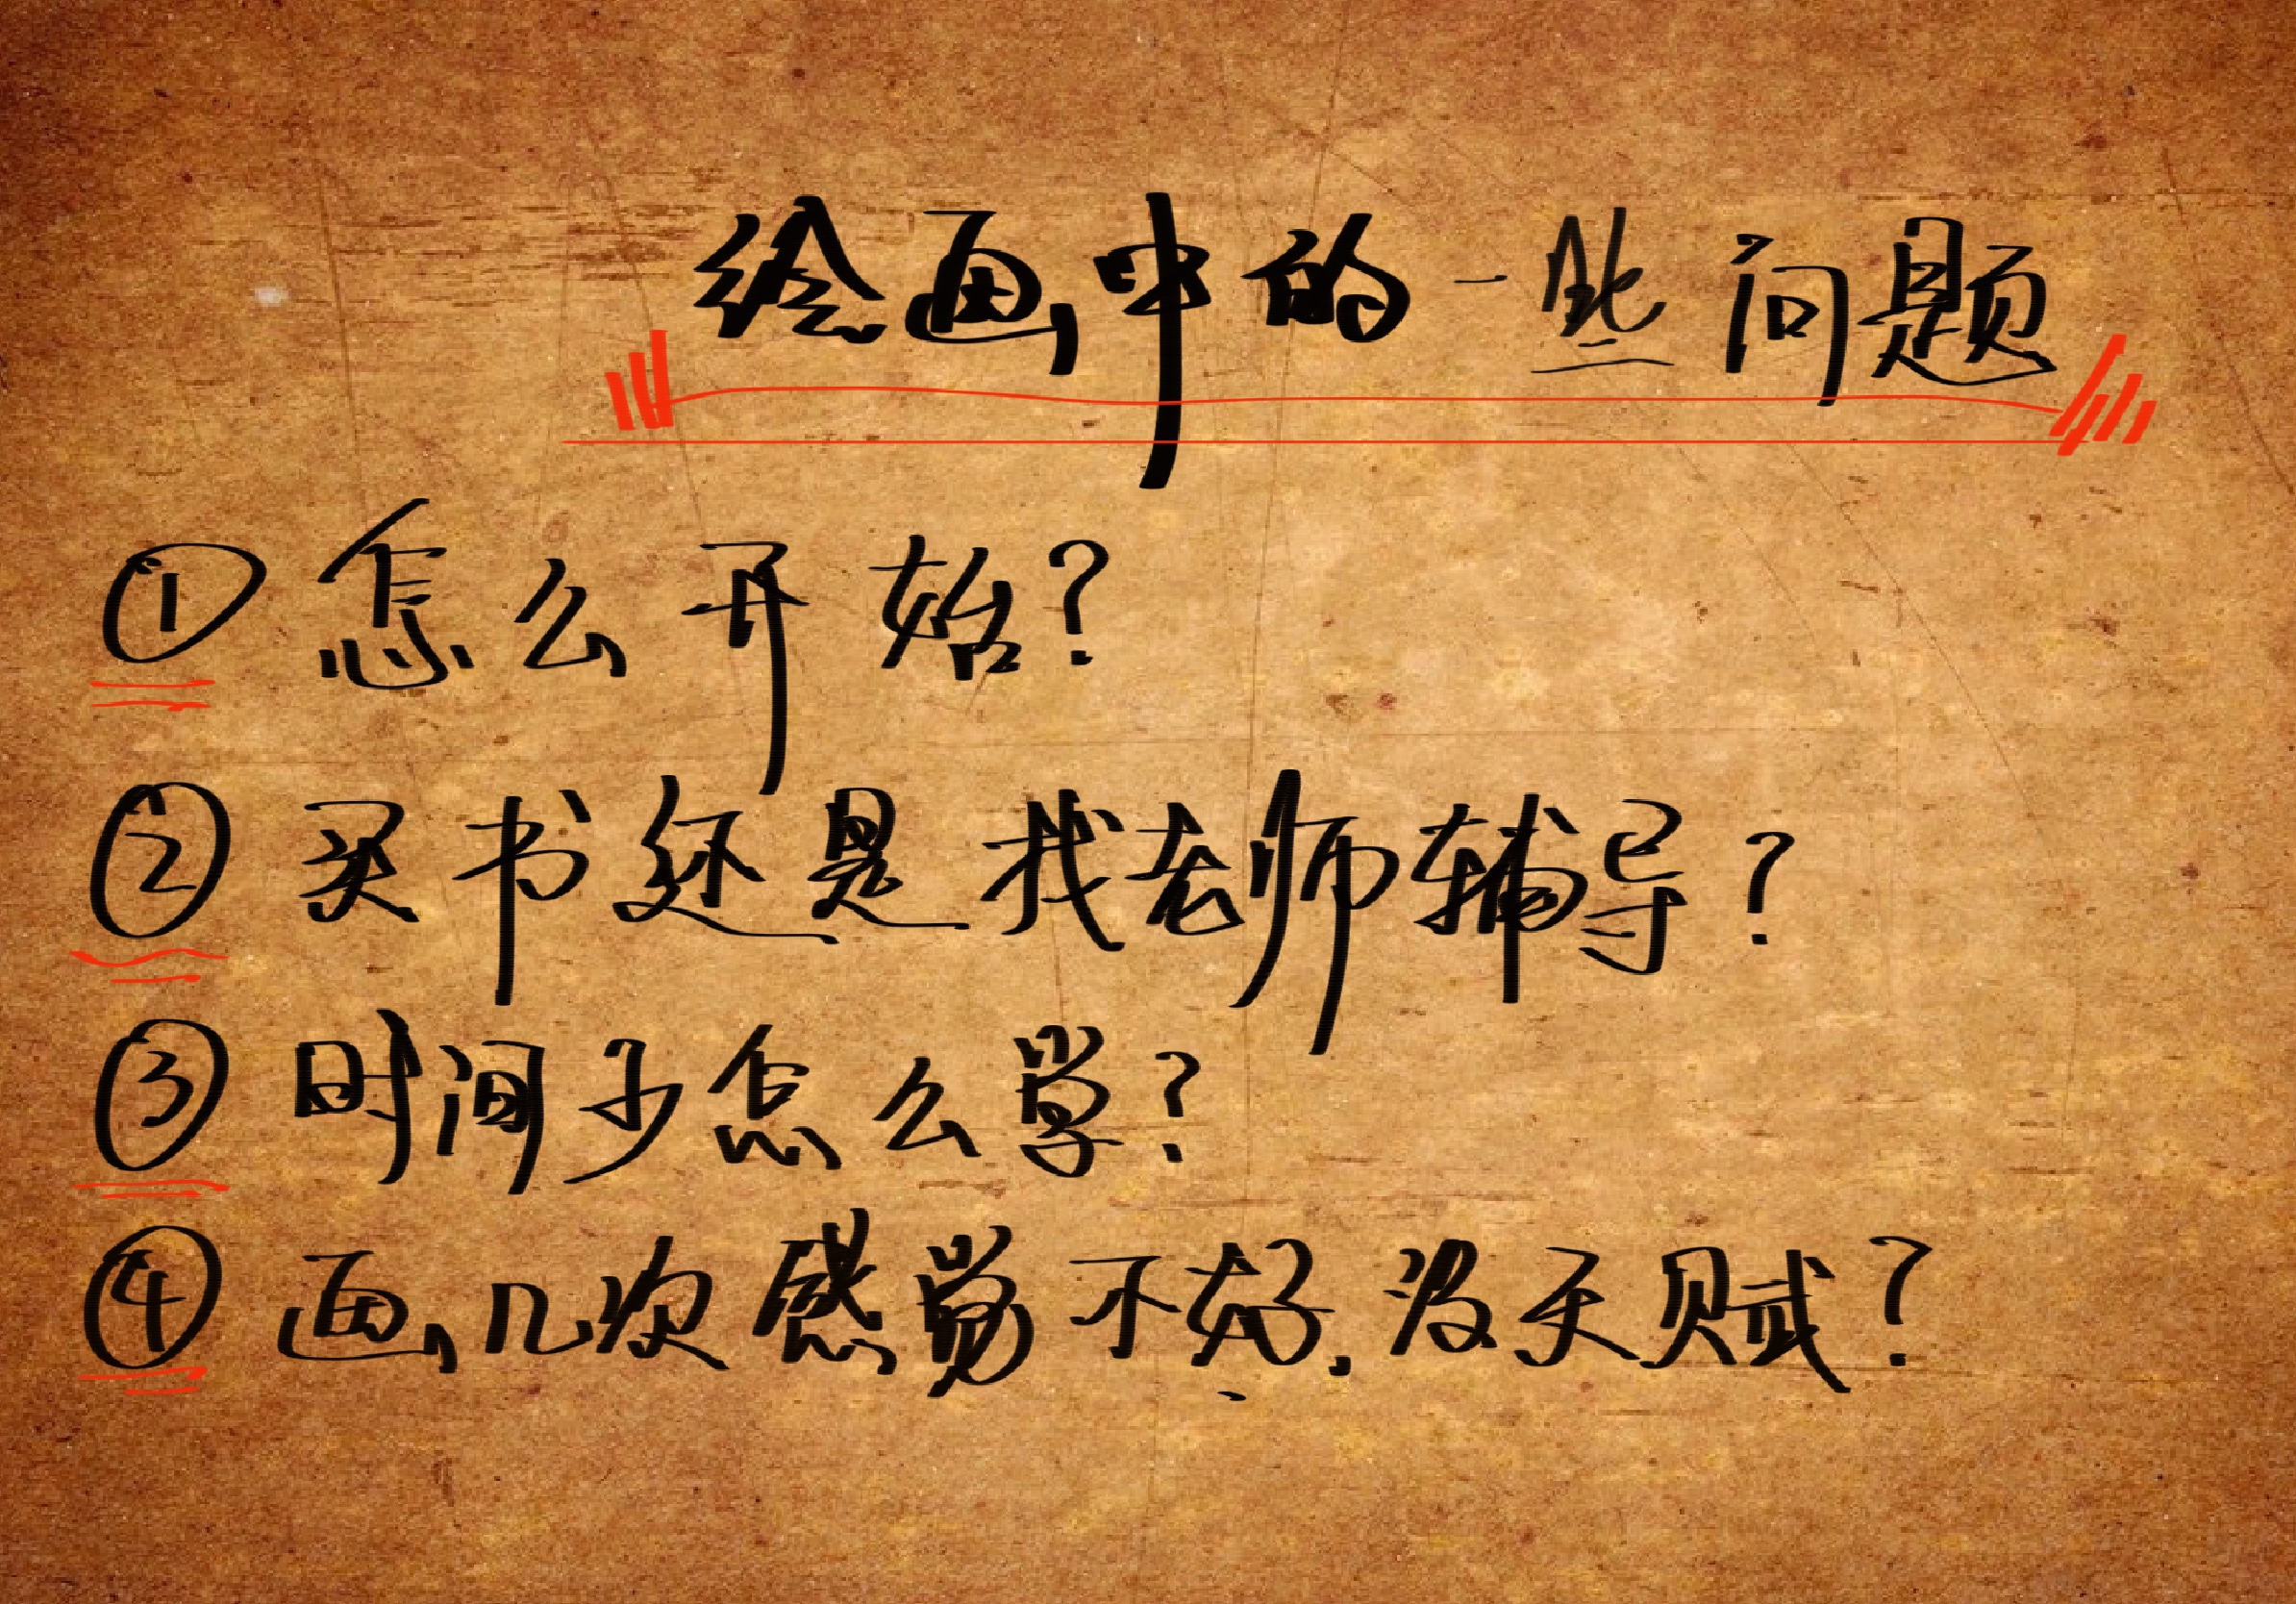 绘画中的一些问题
① 怎么开始?
② 买书还是找老师辅导?
③ 时间少怎么学?
④ 画几次感觉不好,没天赋?